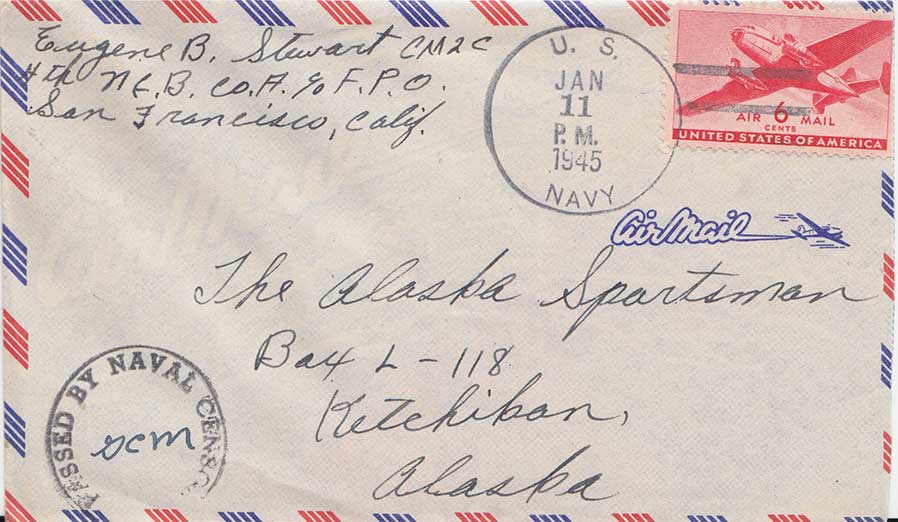 Eugene B. Stewart CM2C
4th N.C.B. Co. A. c/o F.P.O.
San Francisco, Calif.
U. S.
JAN
11
P.M.
1945
NAVY
AIR 6 MAIL
CENTS
UNITED STATES OF AMERICA
Air Mail
The Alaska Sportsman
Box L-118
Ketchikan,
Alaska
PASSED BY NAVAL CENSOR
scm